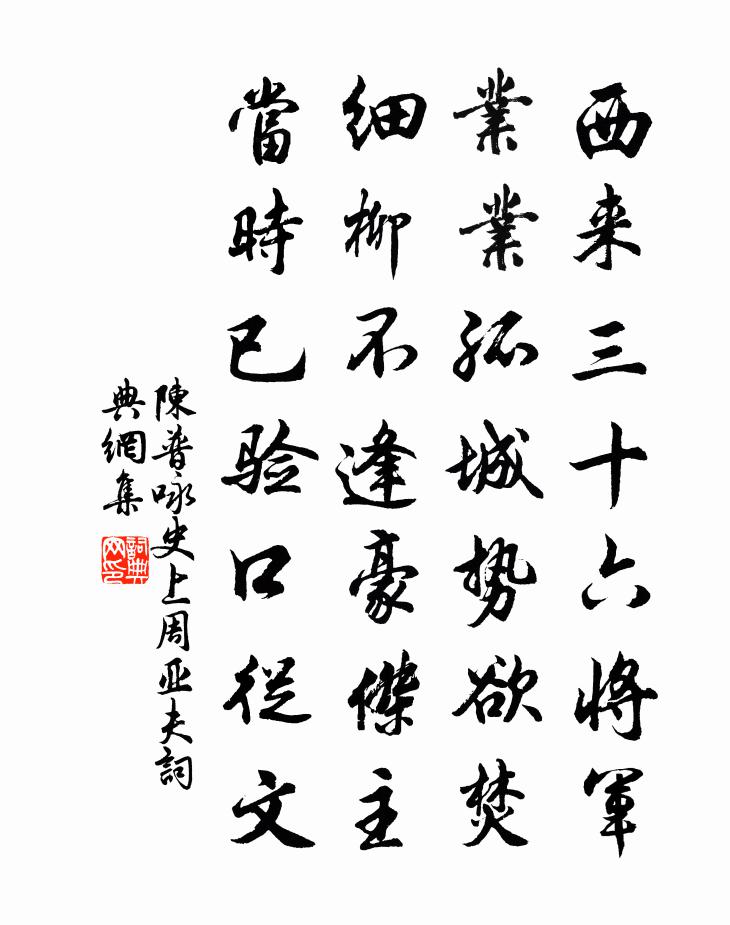 西来三十六将軍
業業孤城势欲焚
細柳不逢豪傑主
當時已验口從文
陳普咏史上周亚夫詞
典網集
詞典
网印